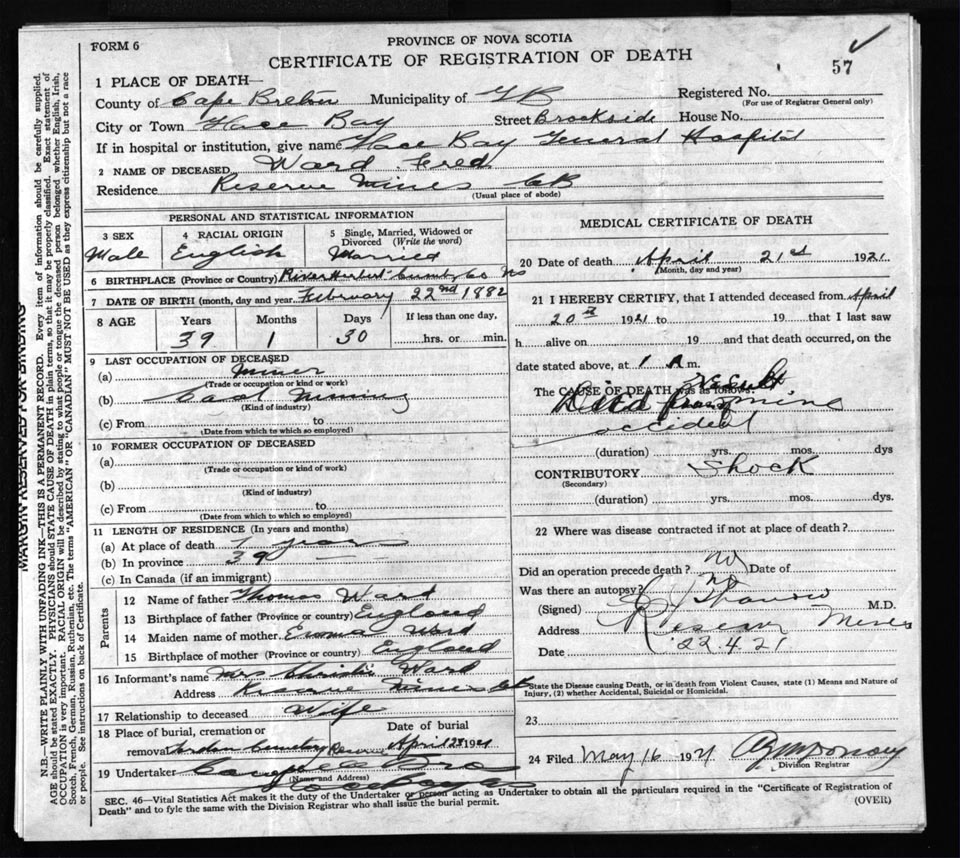 FORM 6
PROVINCE OF NOVA SCOTIA
CERTIFICATE OF REGISTRATION OF DEATH
57
1 PLACE OF DEATH—
County of Cape Breton Municipality of Registered No.
(For use of Registrar General only)
City or Town Glace Bay Street Brookside House No.
If in hospital or institution, give name Glace Bay General Hospital
2 NAME OF DECEASED Ward Fred
Residence Reserve Mines CB
(Usual place of abode)
PERSONAL AND STATISTICAL INFORMATION
3 SEX Male
4 RACIAL ORIGIN English
5 Single, Married, Widowed or Divorced (Write the word) Married
6 BIRTHPLACE (Province or Country) River Hebert Cumb Co NS
7 DATE OF BIRTH (month, day and year. February 22nd 1882
8 AGE Years Months Days If less than one day,
39 1 30 hrs. or min.
9 LAST OCCUPATION OF DECEASED
(a) Miner
(Trade or occupation or kind or work)
(b) Coal Mining
(Kind of industry)
(c) From to
(Date from which to which so employed)
10 FORMER OCCUPATION OF DECEASED
(a)
(Trade or occupation or kind of work)
(b)
(Kind of industry)
(c) From to
(Date from which to which so employed)
11 LENGTH OF RESIDENCE (In years and months)
(a) At place of death
(b) In province 39
(c) In Canada (if an immigrant)
Parents
12 Name of father Thomas Ward
13 Birthplace of father (Province or country) England
14 Maiden name of mother Emma Ward
15 Birthplace of mother (Province or country) England
16 Informant's name Mrs Ward
Address Reserve Mines CB
17 Relationship to deceased Wife
18 Place of burial, cremation or removal Cemetery Reserve
Date of burial April 1921
19 Undertaker Bro
(Name and Address)
MEDICAL CERTIFICATE OF DEATH
20 Date of death April 21st 1921
(Month, day and year)
21 I HEREBY CERTIFY, that I attended deceased from April
20th 1921 to 19 that I last saw
h alive on 19 and that death occurred, on the
date stated above, at 1 A m.
The CAUSE OF DEATH was as follows:
Result
Died from mine
accident
(duration) yrs. mos. dys
CONTRIBUTORY Shock
(Secondary)
(duration) yrs. mos. dys.
22 Where was disease contracted if not at place of death?
Did an operation precede death? No Date of
Was there an autopsy? No
(Signed) M.D.
Address Reserve Mines
Date 22.4.21
State the Disease causing Death, or in death from Violent Causes, state (1) Means and Nature of
Injury, (2) whether Accidental, Suicidal or Homicidal.
23
24 Filed May 16 1921
Division Registrar
SEC. 46—Vital Statistics Act makes it the duty of the Undertaker or person acting as Undertaker to obtain all the particulars required in the "Certificate of Registration of
Death" and to fyle the same with the Division Registrar who shall issue the burial permit.
(OVER)
MARGIN RESERVED FOR BINDING
N.B.—WRITE PLAINLY WITH UNFADING INK—THIS IS A PERMANENT RECORD. Every item of information should be carefully supplied.
AGE should be stated EXACTLY. PHYSICIANS should STATE CAUSE OF DEATH in plain terms, so that it may be properly classified. Exact statement of
OCCUPATION is very important. RACIAL ORIGIN will be described by stating to what people or tongue the deceased person belonged whether English, Irish,
Scotch, French, German, Russian, Ruthenian, etc. The terms "AMERICAN" OR "CANADIAN" MUST NOT BE USED as they express citizenship but not a race
or people. See instructions on back of Certificate.